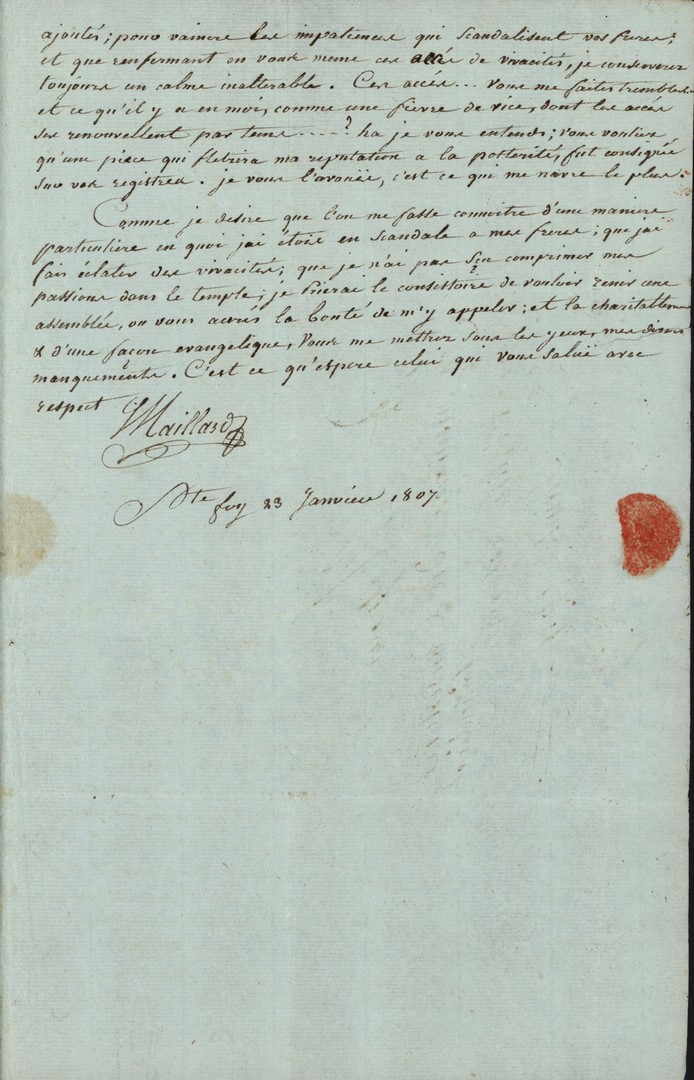 ajoutés; pour vaincre les impatiences qui scandalisent vos freres;
et que renfermant en vous meme ces accés de vivacités, je conserverez
toujours un calme inalterable. Ces accés... Vous me faites trembler
et ce qu'il y a en moi, comme une fievre de vice, dont les accés
se renouvellent par tems.....? ha je vous entends; vous vouliez
qu'une piece qui fletrira ma reputation a la posterité, fut consignée
sur vos registres. je vous l'avouëe, c'est ce qui me navre le plus.
Comme je desire que l'on me fasse connoitre d'une maniere
particuliere en quoi jai étois en scandale a mes freres; que jai
fais éclater des vivacités; que je n'ai pas sçu comprimer mes
passions dans le temple; je prierai le consistoire de vouloir tenir une
assemblée, ou vous aurés la bonté de m'y appeler; et la charitablement
& d'une façon evangelique, Vous me mettrez sous les yeux, mes
manquements. C'est ce qu'espere celui que vous saluë avec
respect
Maillard
Ste foy 23 Janvier 1807